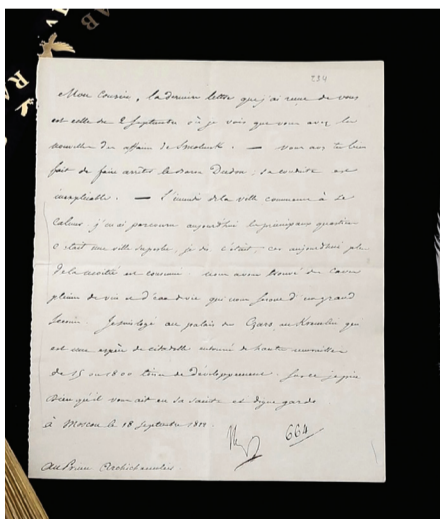 234
Mon Cousin, la dernière lettre que j'ai reçue de vous
est celle du 2 Septembre où je vois que vous avez les
nouvelles des affaires de Smolensk. — Vous avez très bien
fait de faire arrêter le baron Dudon, sa conduite est
inexplicable. — L'incendie de la ville commence à se
calmer, j'en ai parcouru aujourd'hui les principaux quartiers
C'était une ville superbe, je dis c'était, car aujourd'hui plus
de la moitié est consumée nous avons trouvé des caves
pleines de vin et d'eau de vie qui nous seront d'un grand
secours. Je suis logé au palais des Czars, au Kremlin qui
est une espèce de citadelle entourée de hautes murailles
de 15 ou 1800 toises de développement. Sur ce je prie
Dieu qu'il vous ait en sa sainte et digne garde.
à Moscou le 18 Septembre 1812.
664
Au Prince Archichancelier